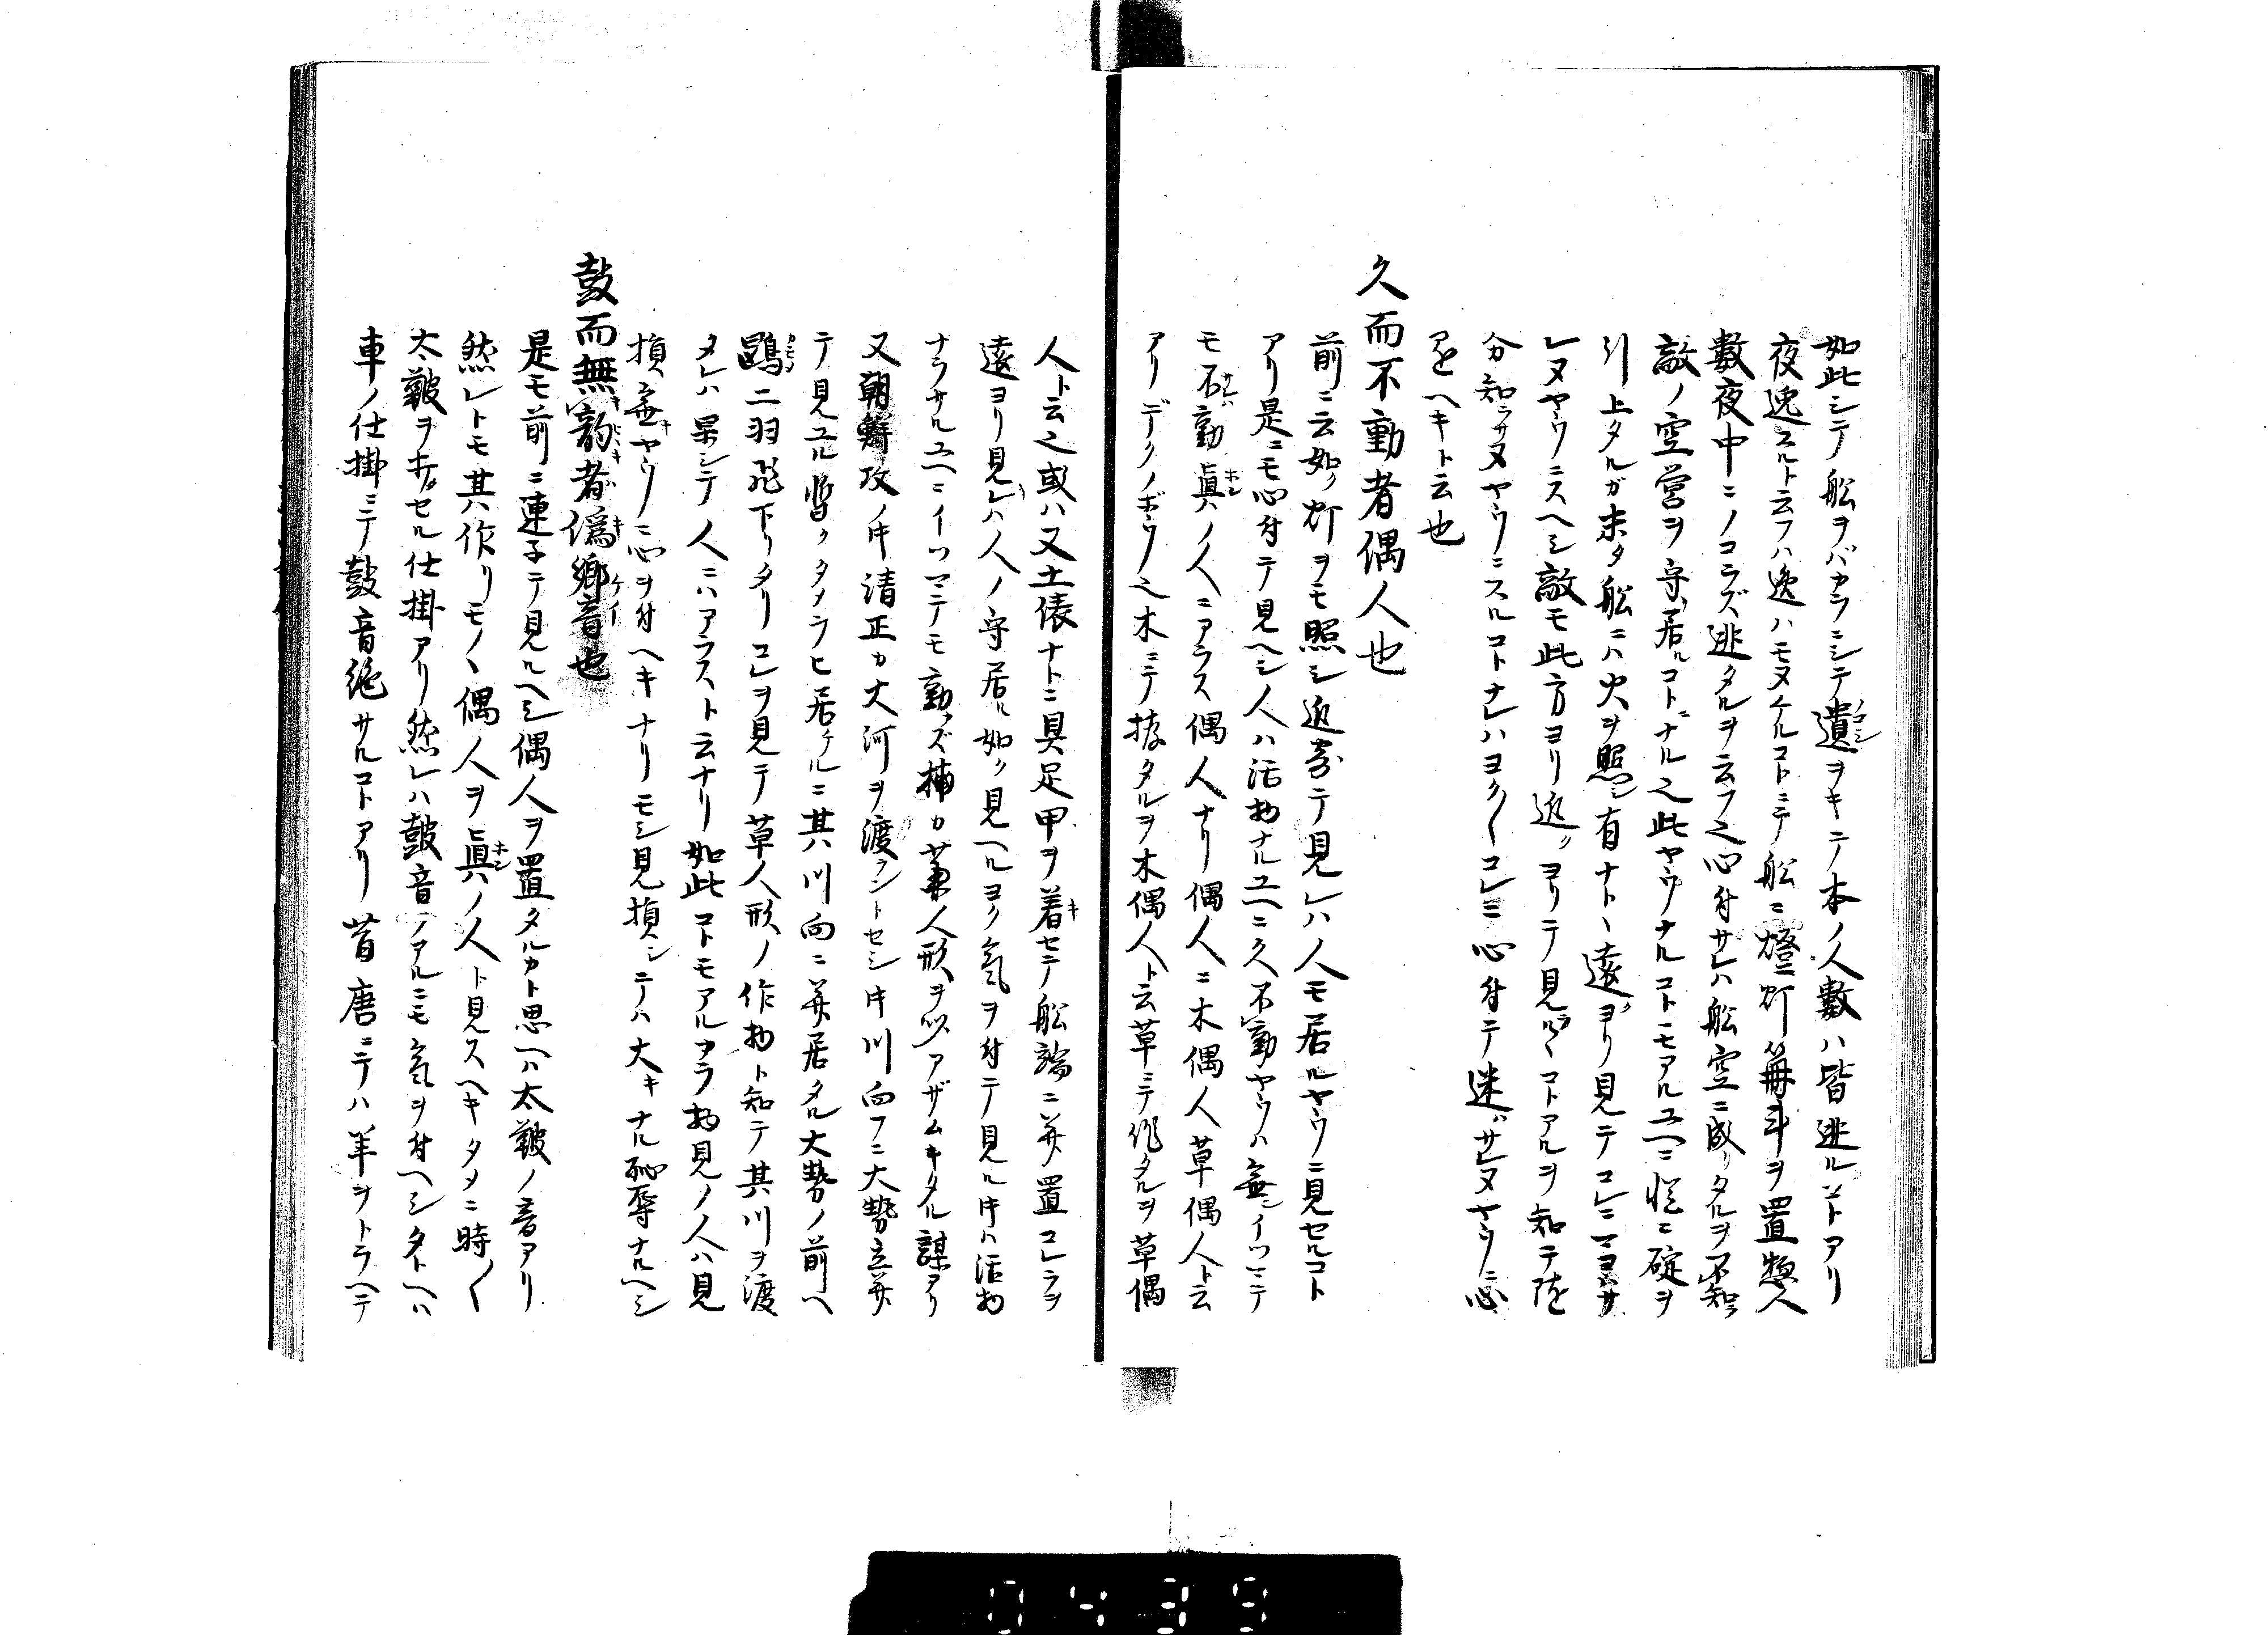 如此シテ船ヲバカラニシテ遺ヲキテ本ノ人數ハ皆逃ルコトアリ
夜逸スルト云フハ逸ハモヌケルコトニテ船ニ燈灯篝斗ヲ置惣人
數夜中ニノコラズ逃タルヲ云フ之心付サレハ船空ニ成リタルヲ不知ラ
敵ノ空営ヲ守居ルコトニナル之此ヤウナルコトモアルユヘニ慥ニ碇ヲ
引上タルガ未タ船ニハ火ヲ照シ有ナト、遠ヨリ見テコレニマヨハサ
レヌヤウニスヘシ敵モ此方ヨリ近クヨリテ見ルコトアルヲ知テ陸
分知ラサヌヤウニスルコトナレハヨク〱コレニ心付テ迷ハサレヌヤウニ心
ヲヘキト云也
久而不動者偶人也
前ニ云如ク灯ヲモ照シ近寄テ見レハ人モ居ルヤウニ見セルコト
アリ是ニモ心付テ見ヘシ人ハ活物ナルユヘニ久不動ヤウハ無シイツマテ
モ不動ハ眞ノ人ニアラス偶人ナリ偶人ニ木偶人草偶人ト云
アリデクノボウノ之木ニテ拵タルヲ木偶人ト云草ニテ作タルヲ草偶
人ト云之或ハ又土俵ナトニ具足甲ヲ着セテ船端ニ并置コレラヲ
遠ヨリ見レハ人ノ守居ル如ク見ヘルヨク氣ヲ付テ見ル時ハ活物
ナラサルユヘニイツマテモ動ズ楠カ藁人形ヲ以アザムキタル謀アリ
又朝鮮攻ノ時清正カ大河ヲ渡ラントセシ時川向フニ大勢立并
テ見ユル暫クタメラヒ居ケルニ其川向ニ并居タル大勢ノ前ヘ
鷗二羽飛下リタリコレヲ見テ草人形ノ作物ト知テ其川ヲ渡
タレハ果シテ人ニハアラスト云ナリ如此コトモアルカラ物見ノ人ハ見
損無キヤウニ心ヲ付ヘキナリモシ見損シテハ大キナル恥辱ナルヘシ
鼓而無韵者偽郷音也
是モ前ニ連子テ見ルヘシ偶人ヲ置タルカト思ヘハ太鞁ノ音アリ
然レトモ其作リモノヽ偶人ヲ眞ノ人ト見スヘキタメニ時〱
太鞁ヲナラセル仕掛アリ然レハ鼓音ノアルニモ氣ヲ付ヘシタトヘハ
車ノ仕掛ニテ鼓音絶サルコトアリ昔唐ニテハ羊ヲトラヘテ
0439